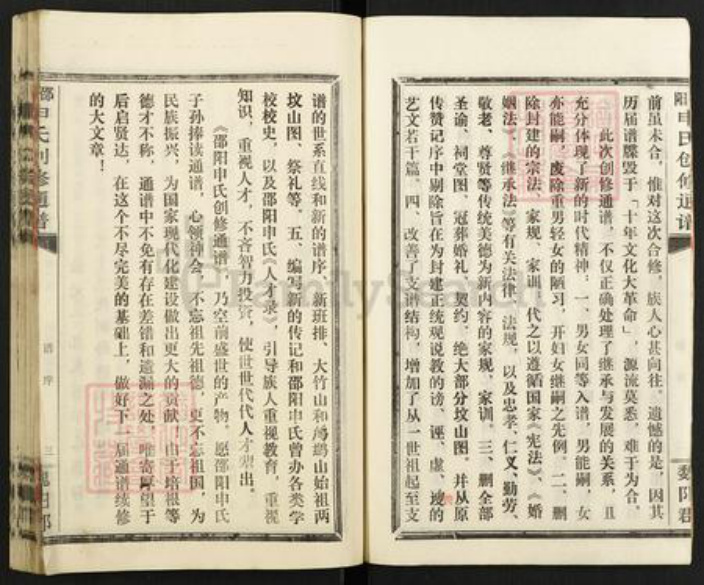 前虽未合，惟对这次合修，族人心甚向往。遗憾的是，因其
历届谱牒毁于「十年文化大革命」，源流莫悉，难于为合。
此次创修通谱，不仅正确处理了继承与发展的关系，且
充分体现了新的时代精神：一、男女同等入谱，男能嗣，女
亦能嗣，废除重男轻女的陋习，开妇女继嗣之先例。二、删
除封建的宗法、家规、家训，代之以遵循国家《宪法》、《婚
姻法》、《继承法》等有关法律、法规，以及忠孝、仁义、勤劳、
敬老、尊贤等传统美德为新内容的家规、家训。三、删全部
圣谕、祠堂图、冠葬婚礼、契约、绝大部分坟山图。并从原
传赞记序中剔除旨在为封建正统观说教的谤、诬、虚、
艺文若干篇。四、改善了支谱结构，增加了从一世祖起至支
谱的世系直线和新的谱序、新班排、大竹山和鸬鹚山始祖两
坟山图、祭礼等。五、编写新的传记和邵阳申氏曾办各类学
校校史，以及邵阳申氏《人才录》，引导族人重视教育，重视
知识，重视人才，不吝智力投资，使世世代代人才辈出。
《邵阳申氏创修通谱》乃空前盛世的产物。愿邵阳申氏
子孙捧读通谱，心领神会，不忘祖先祖德，更不忘祖国，为
民族振兴，为国家现代化建设做出更大的贡献！由于培根等
德才不称，通谱中不免有存在差错和遗漏之处，唯寄厚望于
后启贤达，在这个不尽完美的基础上，做好下一届通谱续修
的大文章！
阳申氏创修通谱
魏阳君
邵申氏创修通谱
谱序
三
魏阳郡
FamilySearch